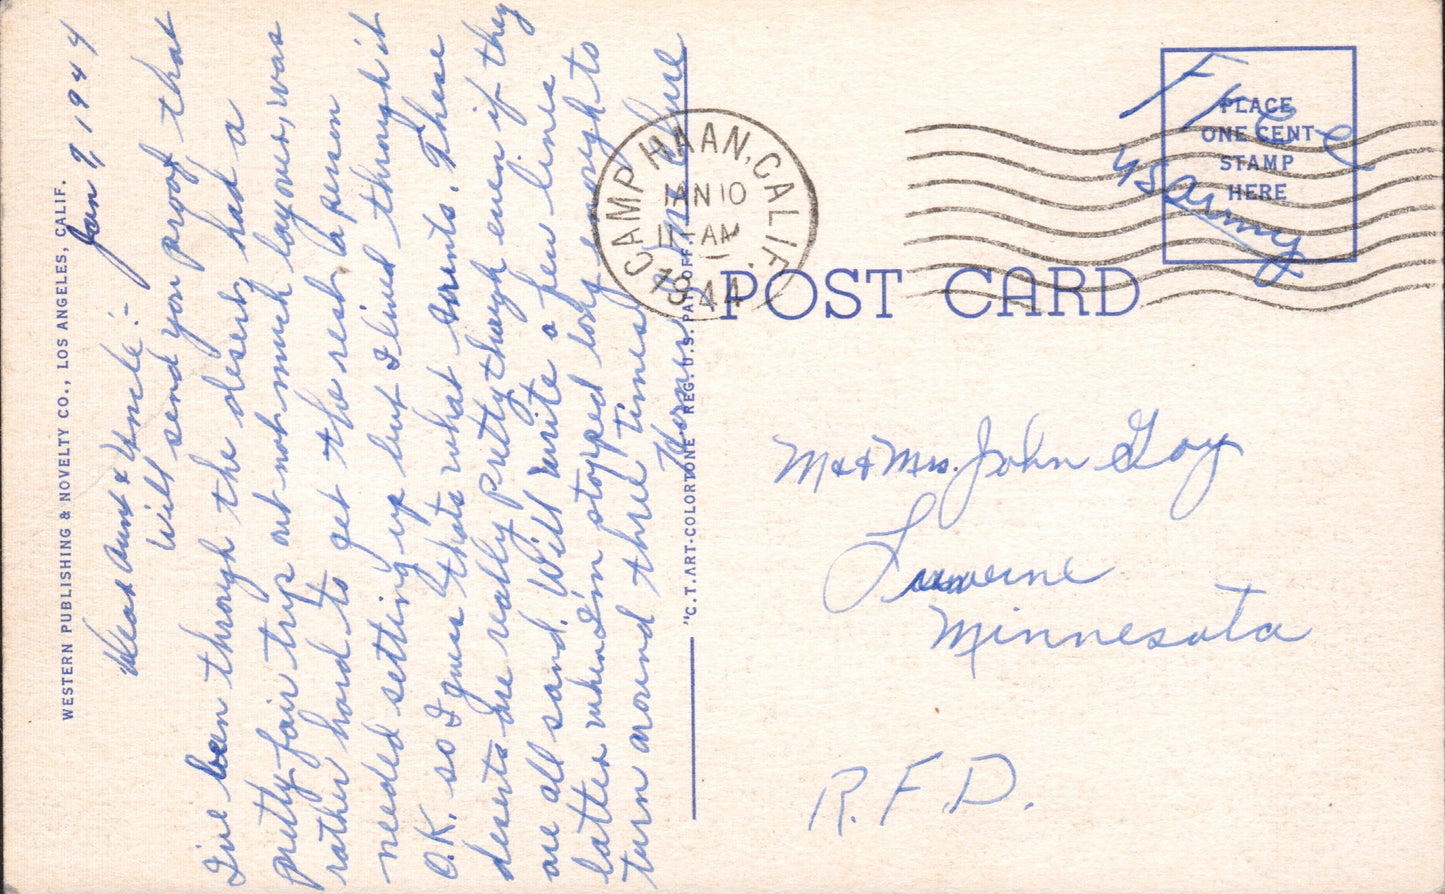 WESTERN PUBLISHING & NOVELTY CO., LOS ANGELES, CALIF.
Jan 9, 1944
Dear Aunt & Uncle:-
Will send you proof that
I've been through the desert, had a
pretty fair trip out not much layover, was
rather hard to get the rest a person
needed setting up but I lived through it
O.K. so I guess thats what counts. These
deserts are really pretty though even if they
are all sand. Will write a few lines
latter when I'm stopped long enough to
turn around three times
"C.T. ART-COLORTONE" REG. U.S. PAT. OFF.
CAMP HAAN, CALIF.
JAN 10
11 AM
1944
POST CARD
PLACE
ONE CENT
STAMP
HERE
Free
US Army
Mr & Mrs. John Goy
Luverne
Minnesota
R.F.D.